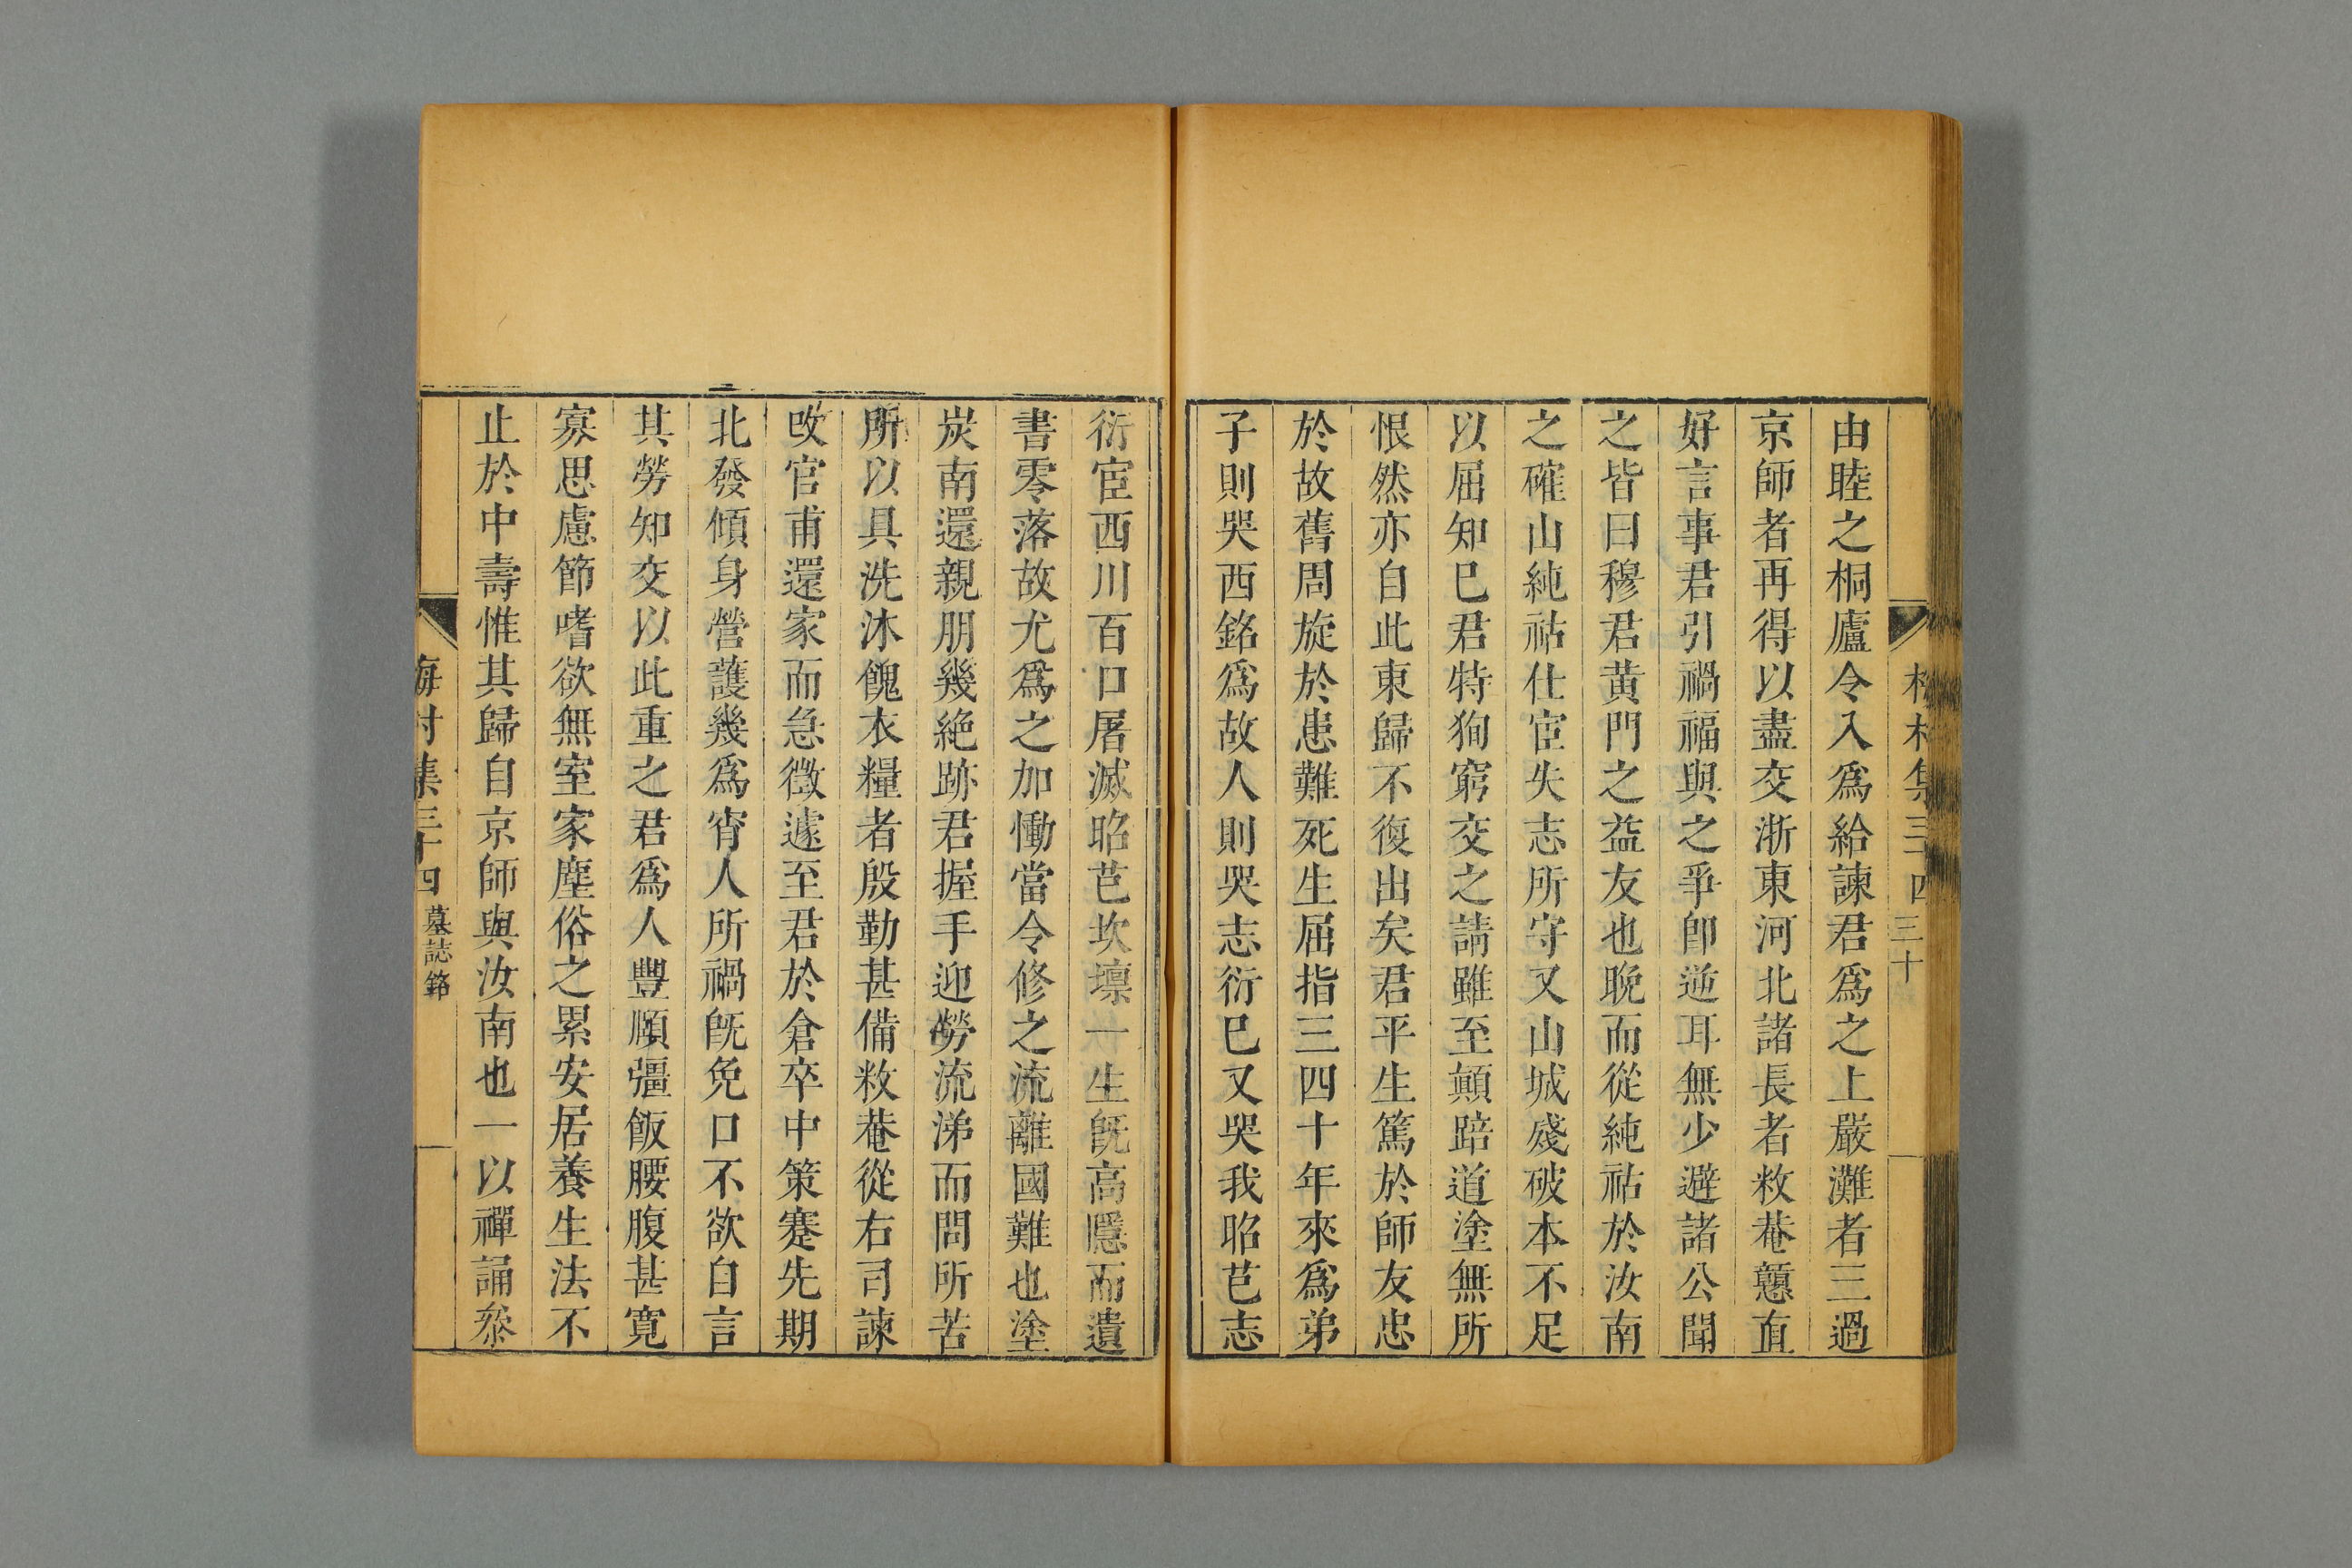 村集三四 三十
由睦之桐廬令入爲給諫君爲之上嚴灘者三過
京師者再得以盡交浙東河北諸長者敉菴戇直
好言事君引禍福與之爭卽逆耳無少避諸公聞
之皆曰穆君黄門之益友也晚而從純祜於汝南
之確山純祜仕宦失志所守又山城殘破本不足
以屈知已君特狥窮交之請雖至顛踣道塗無所
恨然亦自此東歸不復出矣君平生篤於師友忠
於故舊周旋於患難死生屈指三四十年來爲弟
子則哭西銘爲故人則哭志衍巳又哭我昭芑志
衍宦西川百口屠滅昭芑坎壈一生旣高隱而遺
書零落故尤爲之加慟當令修之流離國難也塗
炭南還親朋幾絶跡君握手迎勞流涕而問所苦
所以具洗沐餽衣糧者殷勤甚備敉菴從右司諫
改官甫還家而急徵遽至君於倉卒中策蹇先期
北發傾身營護幾爲宵人所禍旣免口不欲自言
其勞知交以此重之君爲人豐頤彊飯腰腹甚寛
寡思慮節嗜欲無室家塵俗之累安居養生法不
止於中壽惟其歸自京師與汝南也一以禪誦叅
梅村集三十四 墓誌銘